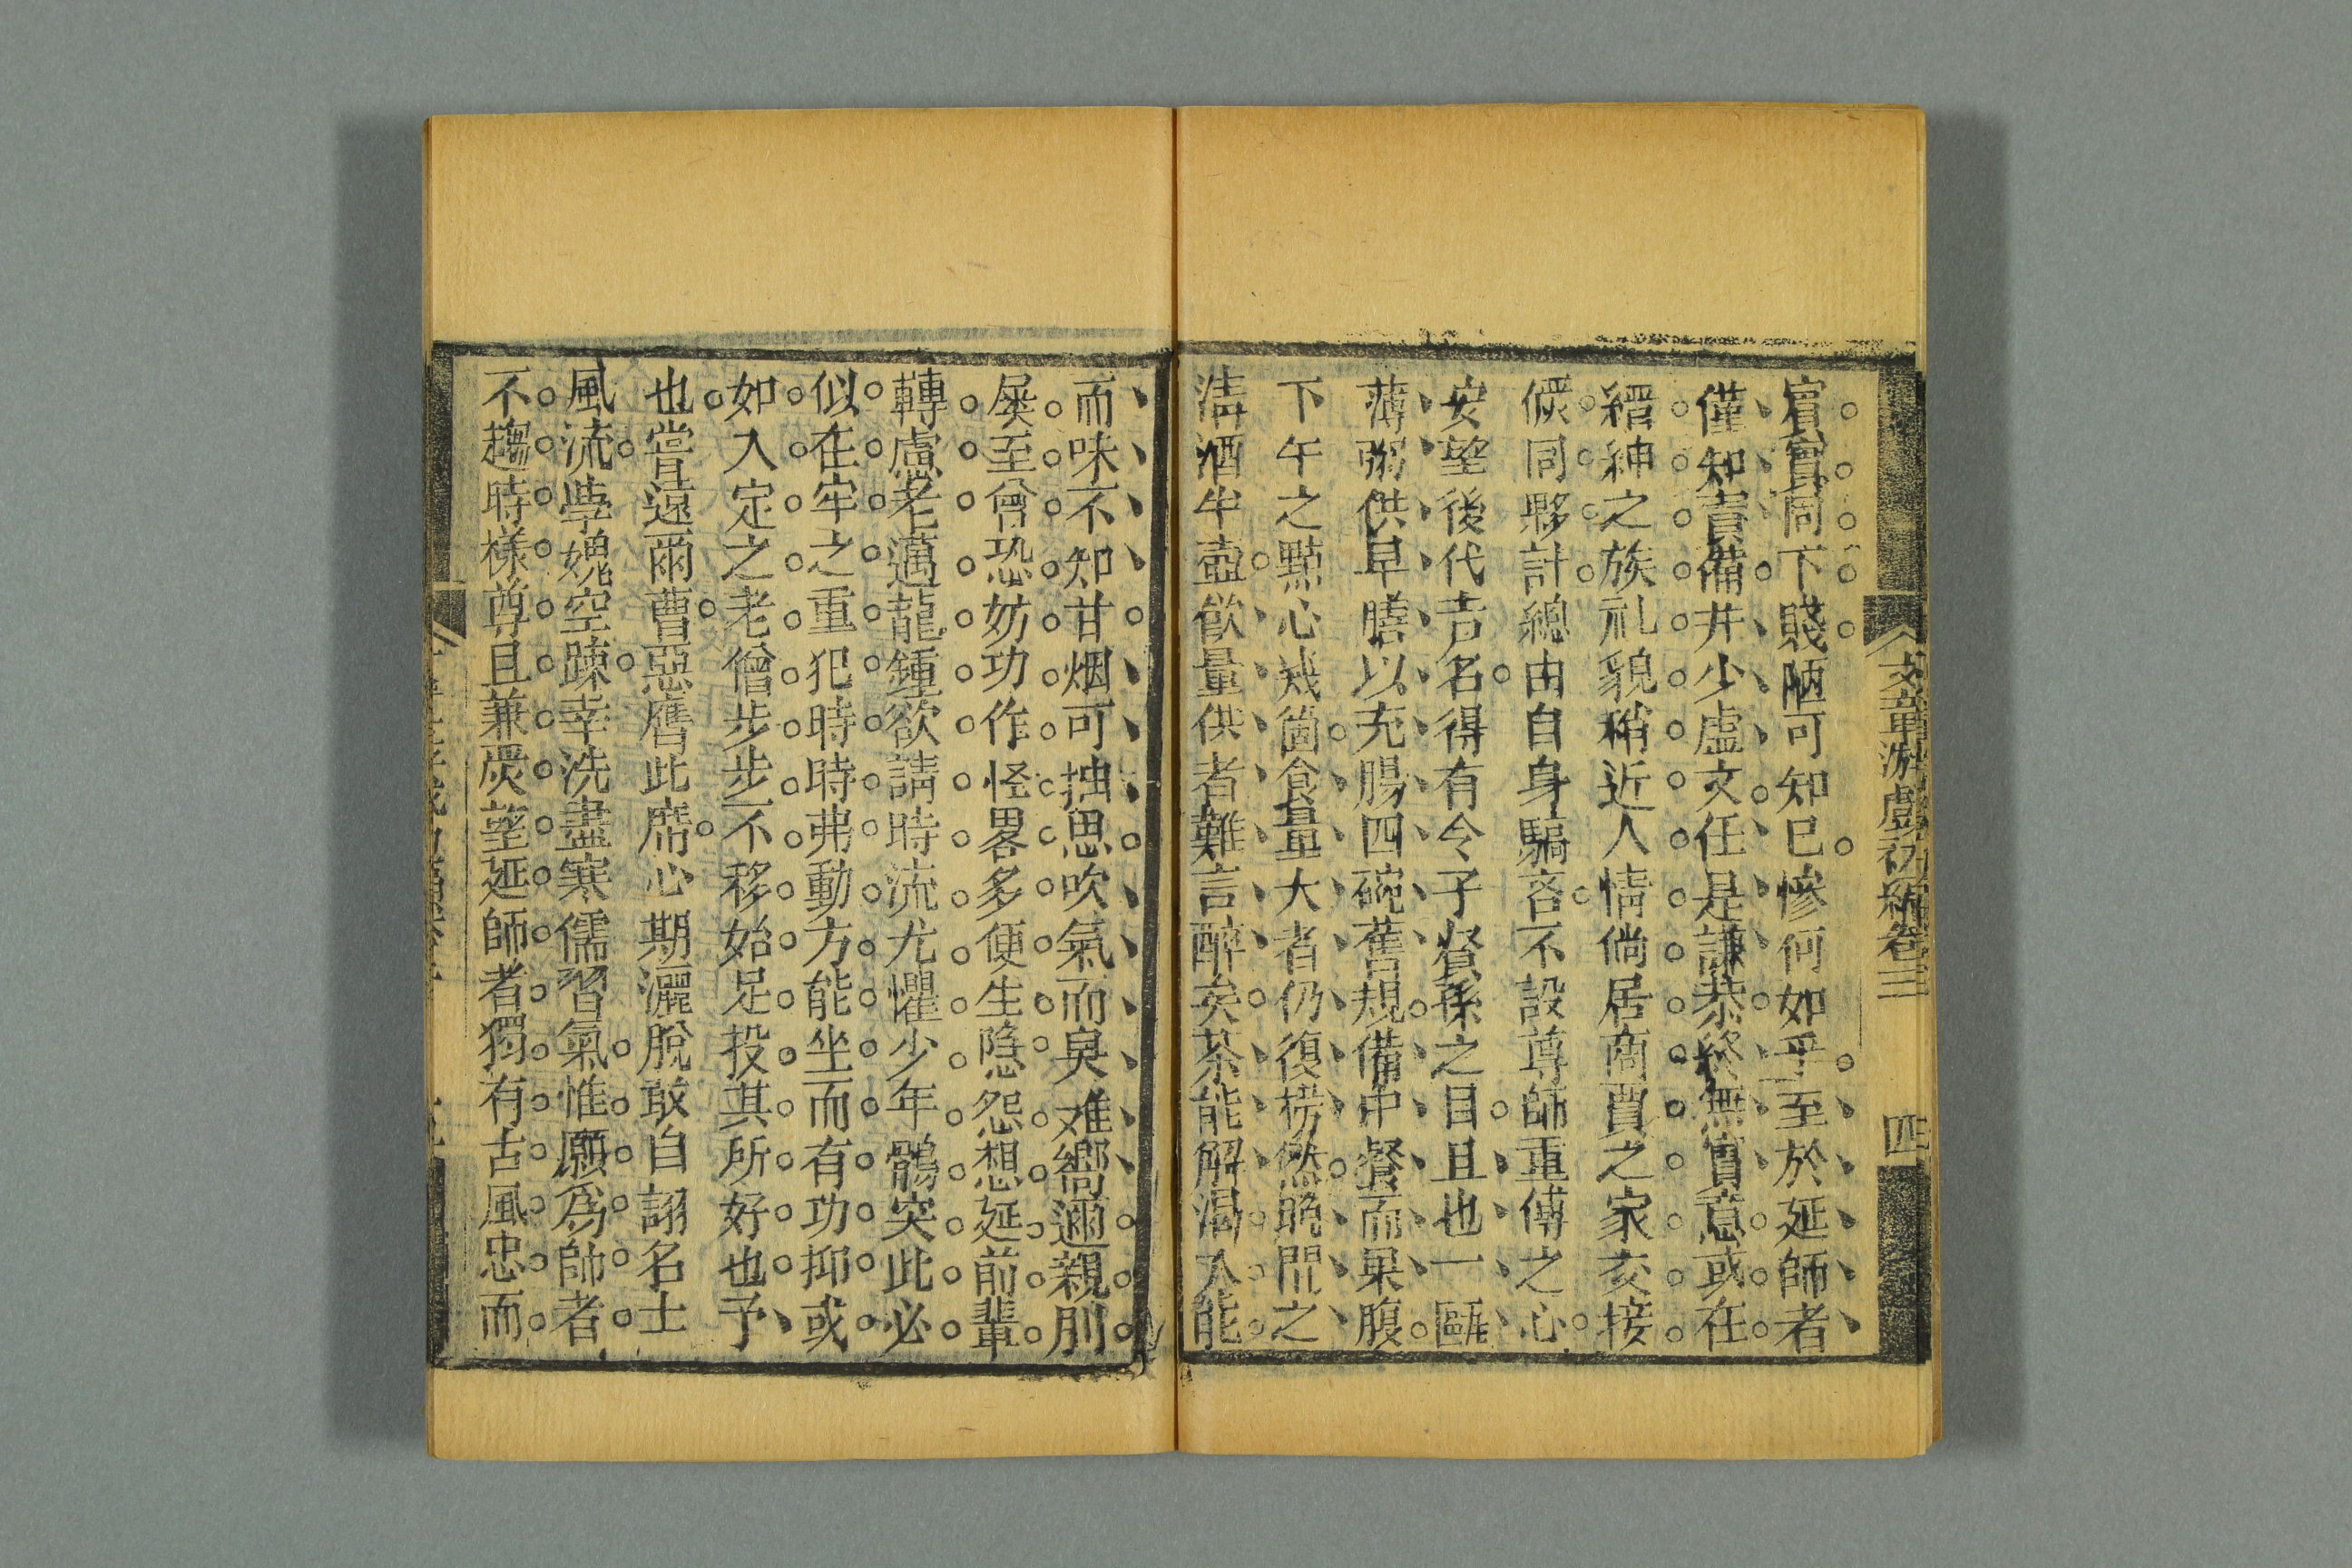 文章游戲初編卷三
四
賓實同下賤陋可知已慘何如乎至於延師者
僅知責備井少虛文任是謙恭終無實意或在
縉紳之族礼貌稍近人情倘居商賈之家交接
候同夥計總由自身騙吝不設尊師重傅之心
安望後代吉名得有令子賢孫之目且也一甌
薄粥供早膳以充腸四碗舊規備中餐而果腹
下午之點心幾箇食量大者仍復枵然晩間之
清酒半壺飲量供者難言醉矣茶能解渴人能
而味不知甘烟可抽思吹氣而臭难嚮邇親朋
屡至曾恐妨功作怪畧多便生隐怨想延前輩
轉慮老邁龍鍾欲請時流尤懼少年鶻突此必
似在牢之重犯時時弗動方能坐而有功抑或
如入定之老僧步步不移始足投其所好也予
也嘗遠爾曹惡膺此席心期灑脫敢自詡名士
風流學媿空疎幸洗盡寒儒習氣惟願爲師者
不趨時樣尊且兼嚴望延師者獨有古風忠而